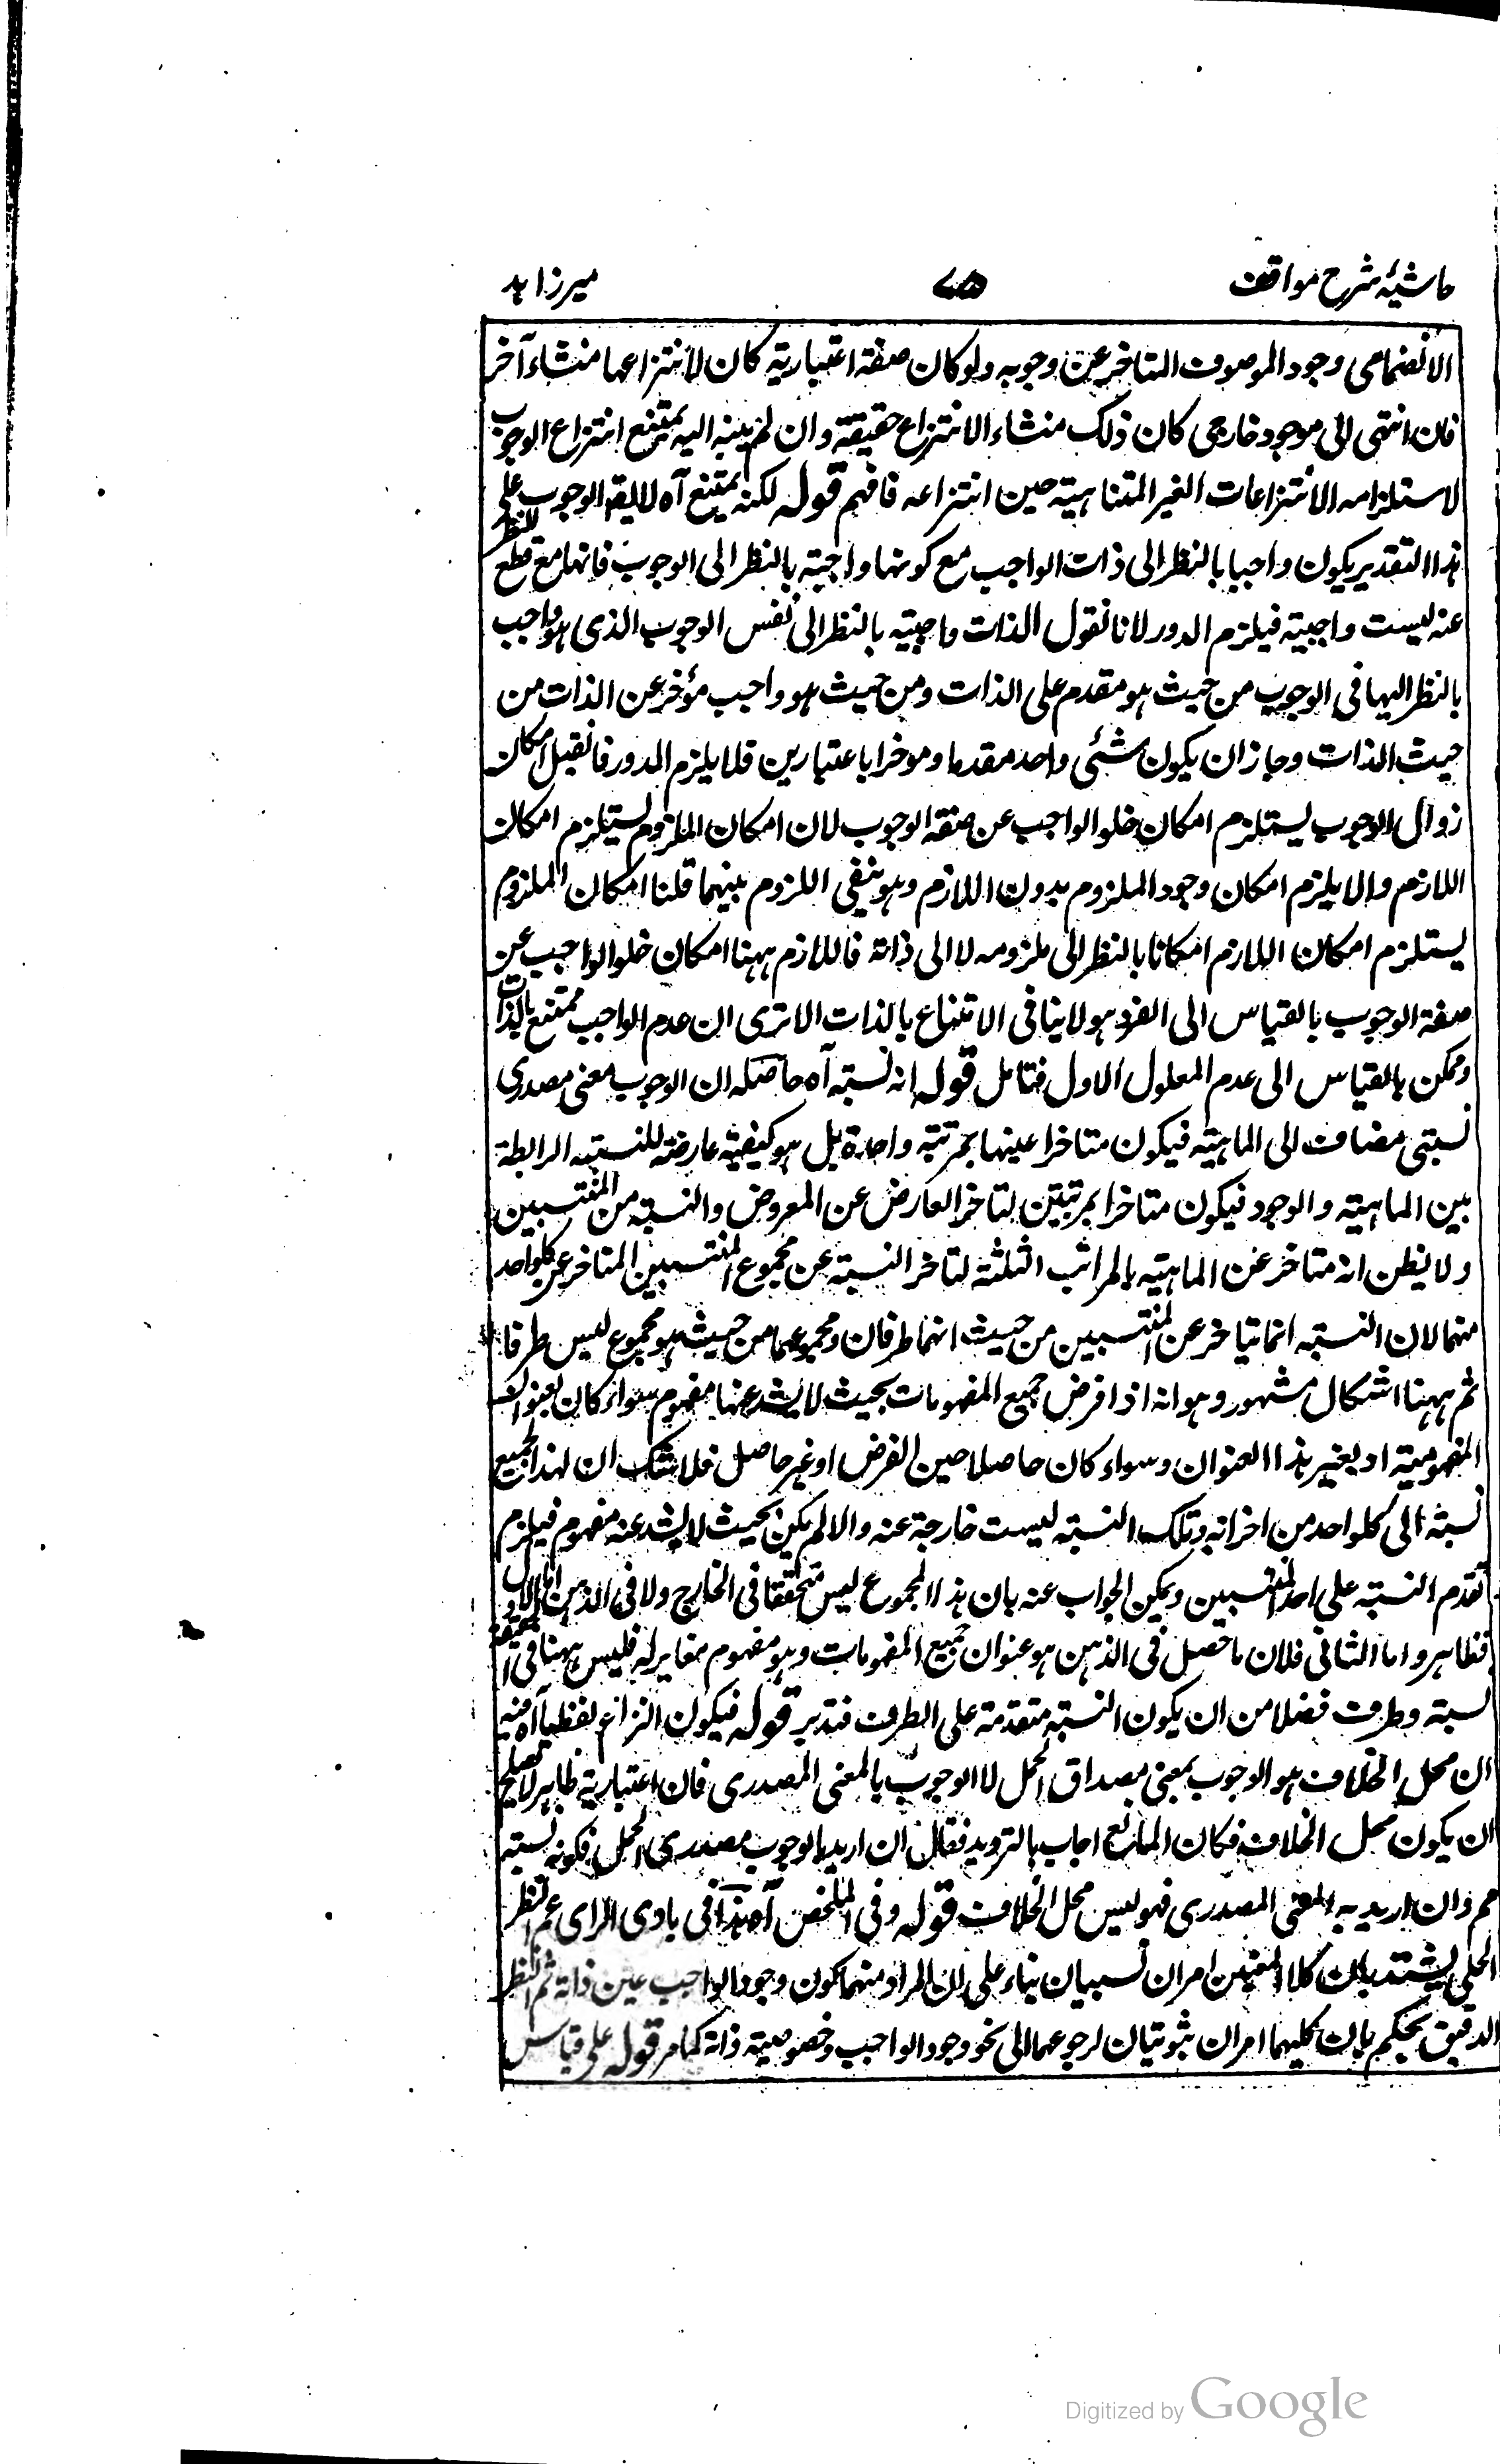 حاشیۂ شرح مواقف ۷۵ میرزاہد
الانضمامی وجود الموصوف المتاخر عن وجوبہ ولو کان صفۃ اعتباریۃ کان لانتزاعہا منشاء آخر
فان انتہی الی موجود خارجی کان ذلک منشاء الانتزاع حقیقۃ وان لم ینتہ الیہ یمتنع انتزاع الوجوب
لاستلزامہ الانتزاعات الغیر المتناہیۃ حین انتزاعہ فافہم قولہ لکنہ یمتنع آہ لا یقہ الوجوب علی
ہذا التقدیر یکون واجبا بالنظر الی ذات الواجب مع کونہا واجبۃ بالنظر الی الوجوب فانہا مع قطع النظر
عنہ لیست واجبۃ فیلزم الدور لانا نقول الذات واجبۃ بالنظر الی نفس الوجوب الذی ہو واجب
بالنظر الیہا فی الوجوب من حیث ہو مقدم علی الذات ومن حیث ہو واجب مؤخر عن الذات من
حیث الذات وجاز ان یکون شئی واحد مقدما وموخرا باعتبارین فلا یلزم الدور فانقیل امکان
زوال الوجوب یستلزم امکان خلو الواجب عن صفۃ الوجوب لان امکان الملزوم یستلزم امکان
اللازم والا یلزم امکان وجود الملزوم بدون اللازم وہو ینفی اللزوم بینہما قلنا امکان الملزوم
یستلزم امکان اللازم امکانا بالنظر الی ملزومہ لا الی ذاتہ فاللازم ہہنا امکان خلو الواجب عن
صفۃ الوجوب بالقیاس الی الغیر وہو لا ینافی الامتناع بالذات الا تری ان عدم الواجب ممتنع بالذات
وممکن بالقیاس الی عدم المعلول الاول فتامل قولہ انہ نسبتہ آہ حاصلہ ان الوجوب معنی مصدری
نسبتی مضاف الی الماہیۃ فیکون متاخرا عنہا بمرتبۃ واحدۃ بل ہو کیفیۃ عارضۃ للنسبتہ الرابطۃ
بین الماہیۃ والوجود فیکون متاخرا بمرتبتین لتاخر العارض عن المعروض والنسبۃ من المنتسبین
ولا یظن انہ متاخر عن الماہیۃ بالمراتب الثلثۃ لتاخر النسبۃ عن مجموع المنتسبین المتاخر عن کلواحد
منہما لان النسبۃ انما یتاخر عن المنتسبین من حیث انہما طرفان ومجموعہما من حیث ہو مجموع لیس طرفا
ثم ہہنا اشکال مشہور وہو انہ اذا فرض جمیع المفہومات بحیث لا یشذ عنہا مفہوم سواء کان بعنوان
المفہومیۃ او بغیر ہذا العنوان وسواء کان حاصلا حین الفرض او غیر حاصل فلا شک ان لہذا الجمیع
نسبۃ الی کلواحد من اجزائہ وتلک النسبۃ لیست خارجۃ عنہ والا لم یکن بحیث لا یشذ عنہ مفہوم فیلزم
تقدم النسبۃ علی احد المنتسبین ویمکن الجواب عنہ بان ہذا المجموع لیس متحققا فی الخارج ولا فی الذہن اما الاول
فظاہر واما الثانی فلان ما حصل فی الذہن ہو عنوان جمیع المفہومات وہو مفہوم مغایر لہ فلیس ہہنا فی الحقیقۃ
نسبۃ وطرف فضلا من ان یکون النسبۃ متقدمۃ علی الطرف فتدبر قولہ فیکون النزاع لفظیا آہ فیہ
ان محل الخلاف ہو الوجوب بمعنی مصداق الحمل لا الوجوب بالمعنی المصدری فان اعتباریۃ ظاہر لا یصلح
ان یکون محل الخلاف فکان المانع اجاب بالتروید فقال ان ارید بالوجوب مصدری الحمل فکونہ نسبتہ
مم وان ارید بہ المعنی المصدری فہو لیس محل الخلاف قولہ وفی الملخص آہ ہذا فی بادی الرای ثم النظر
الجلی یشہد بان کلا المعنیین امران نسبیان بناء علی ان المراد منہما کون وجود الواجب عین ذاتہ ثم النظر
الدقیق یحکم بان کلیہما امران ثبوتیان لرجوعہما الی نحو وجود الواجب وخصوصیۃ ذاتہ کما مر قولہ علی قیاس
Digitized by Google